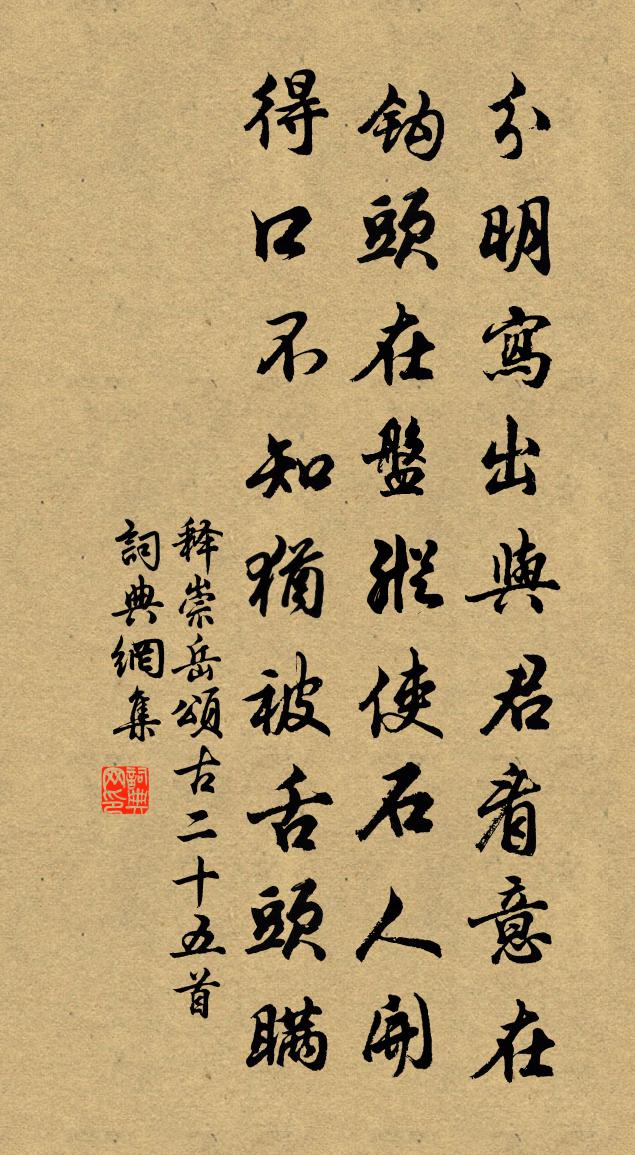 分明寫出與君看意在
鈎頭在盤縱使石人開
得口不知猶被舌頭瞞
释崇岳頌古二十五首
詞典網集
詞典网印